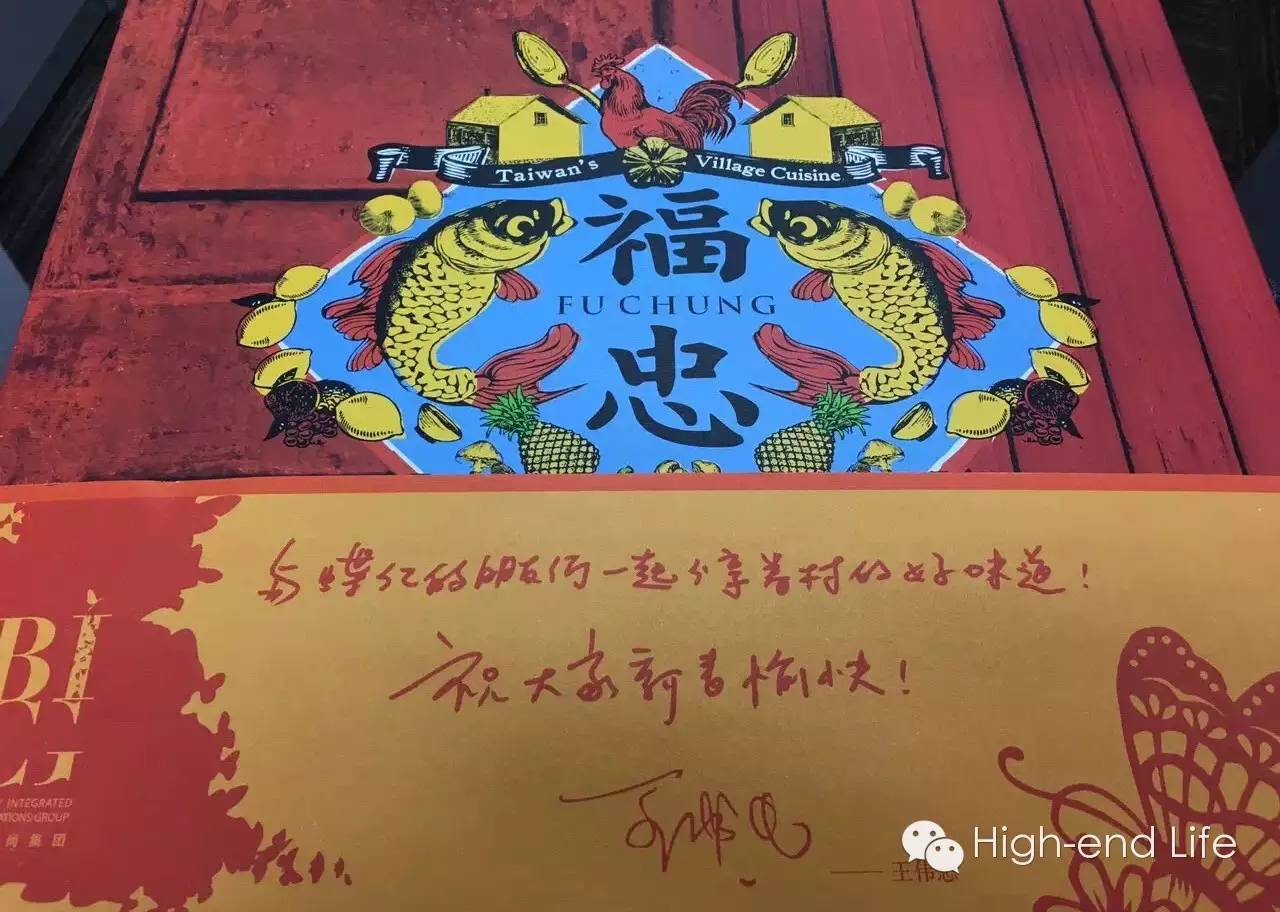 Taiwan's Village Cuisine
福
FU CHUNG
忠
与蝶的朋友们一起分享眷村的好味道！
祝大家新春愉快！
BI
G
INTEGRATED
ATIONS GROUP
尚集团
—— 王伟忠
High-end Life